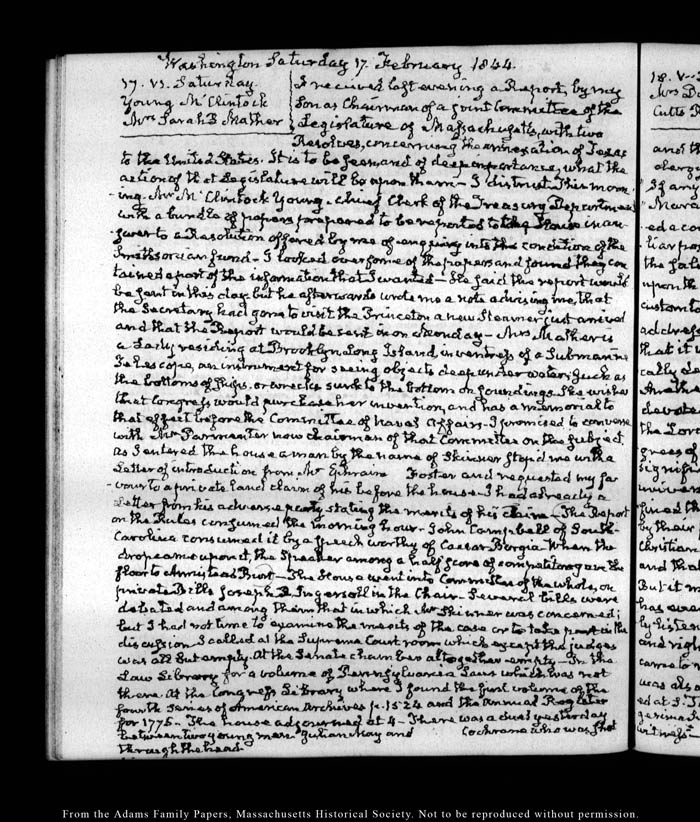 Washington Saturday 17. February 1844.
17. VI. Saturday.
Young McClintock
Mrs Sarah B Mather
I received last evening a Report, by my
Son as Chairman of a joint Committee of the
Legislature of Massachusetts, with two
Resolves, concerning the annexation of Texas
to the United States. It is to be seen and of deep importance, what the
action of the Legislature will be upon them—
ing. Mr McClintock Young, chief Clerk of the Treasury Department
with a bundle of papers prepared to be reported to the House in an
swer to a Resolution offered by me of enquiry into the condition of the
Smithsonian fund—I looked over some of the papers and found they con
tained part of the information that I wanted—He said this report would
be sent in this day but he afterwards wrote me a note advising me, that
the Secretary had gone to visit the Princeton a new Steamer just arrived
and that the Report would be sent in on Monday—Mrs Mather is
a Lady residing at Brooklyn Long Island inventress of a Submarine
Telescope, an instrument for seeing objects deep under water, such as
the bottoms of ships, or wrecks sunk to the bottom on soundings. She wishes
that Congress would purchase her invention, and has a memorial to
that effect before the Committee of naval affairs. I promised to converse
with Mr Parmenter now chairman of that Committee on the subject
as I entered the house a man by the name of Skinner stop'd me with a
Letter of introduction from Mr Ephraim Foster and requested my fa
vour to a private land claim of his before the house. I had already a
Letter from his adverse party stating the merits of his claim—The Report
on the Rules consumed the morning hour. John Campbell of South
Carolina consumed it by a speech worthy of Caesar Borgia. When the
drop came upon it, the Speaker among a half score of competitors gave the
floor to Armistead Burt—The House went into Committee of the whole, on
private Bills Joseph R. Ingersoll in the Chair. Several bills were
debated and among them that in which Mr Skinner was concerned;
but I had not time to examine the merits of the case or to take part in the
discussion. I called at the Supreme Court room which except the judges
was all but empty. At the Senate chamber altogether empty—In the
Law Library for a volume of Pennsylvania Laws which was not
there. At the Congress Library where I found the first volume of the
fourth Series of American Archives p. 1524 and the Annual Register
for 1775.—The house adjourned at 4—There was a duel yesterday
between two young men Julian May and Cochrane who was shot
through the head
From the Adams Family Papers, Massachusetts Historical Society. Not to be reproduced without permission.